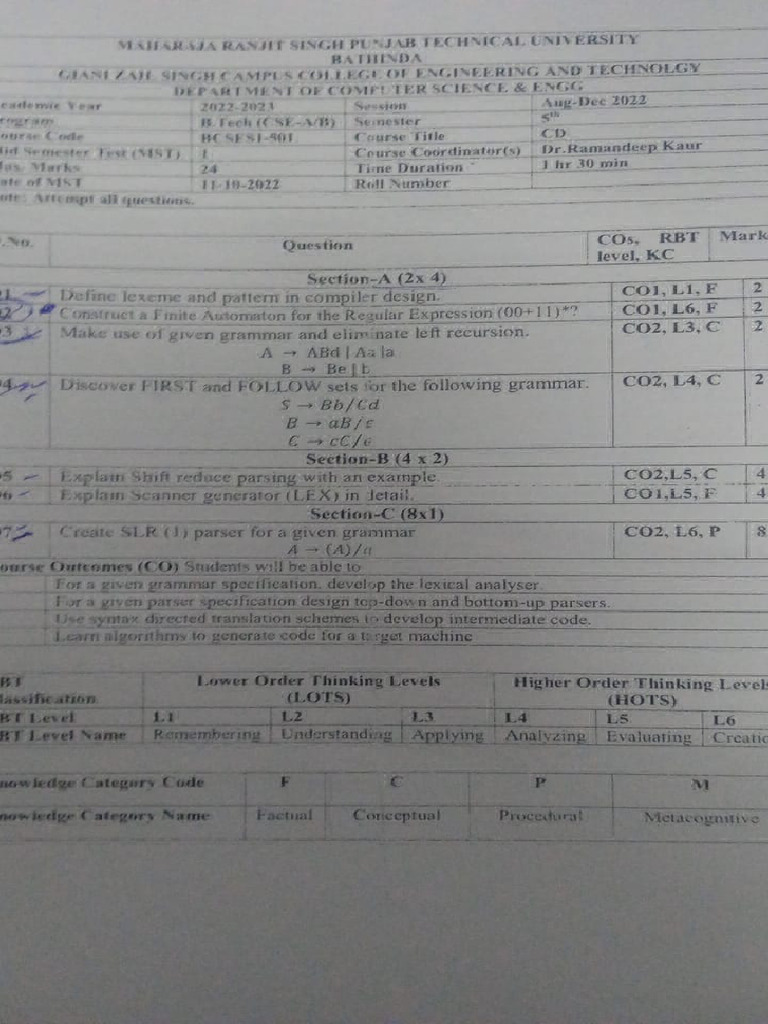 MAHARAJA RANJIT SINGH PUNJAB TECHNICAL UNIVERSITY
BATHINDA
GIANI ZAIL SINGH CAMPUS COLLEGE OF ENGINEERING AND TECHNOLGY
DEPARTMENT OF COMPUTER SCIENCE & ENGG
cademic Year 2022-2023 Session Aug-Dec 2022
rogram B.Tech (CSE-A/B) Semester 5th
ourse Code BCSES1-501 Course Title CD
lid Semester Test (MST) 1 Course Coordinator(s) Dr.Ramandeep Kaur
Max. Marks 24 Time Duration 1 hr 30 min
ate of MST 11-10-2022 Roll Number
ote: Attempt all questions.
.No. Question COs, RBT level, KC Mark
Section-A (2x 4)
Define lexeme and pattern in compiler design. CO1, L1, F 2
2 Construct a Finite Automaton for the Regular Expression (00+11)*? CO1, L6, F 2
3 Make use of given grammar and eliminate left recursion. CO2, L3, C 2
A → ABd | Aa |a
B → Be | b
4 Discover FIRST and FOLLOW sets for the following grammar. CO2, L4, C 2
S → Bb/Cd
B → aB/ε
C → cC/ε
Section-B (4 x 2)
5 Explain Shift reduce parsing with an example. CO2,L5, C 4
6 Explain Scanner generator (LEX) in detail. CO1,L5, F 4
Section-C (8x1)
7 Create SLR (1) parser for a given grammar CO2, L6, P 8
A → (A)/a
ourse Outcomes (CO) Students will be able to
For a given grammar specification, develop the lexical analyser
For a given parser specification design top-down and bottom-up parsers.
Use syntax directed translation schemes to develop intermediate code.
Learn algorithms to generate code for a target machine
BT Lower Order Thinking Levels Higher Order Thinking Levels
lassification (LOTS) (HOTS)
BT Level L1 L2 L3 L4 L5 L6
BT Level Name Remembering Understanding Applying Analyzing Evaluating Creatio
nowledge Category Code F C P M
nowledge Category Name Factual Conceptual Procedural Metacognitive